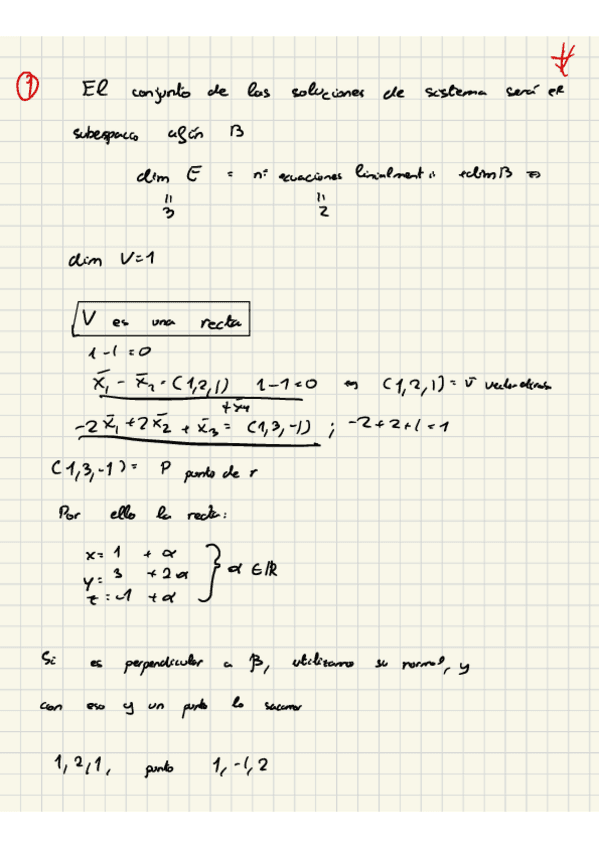 1 El conjunto de las soluciones de sistema será el
subespacio afín B
dim E = nº ecuaciones linialment ii + dim B ⇒
ıı ıı
3 2
dim V=1
V es una recta
1-1=0
x̄₁ - x̄₂ = (1,2,1) 1-1=0 ⇒ (1,2,1) = v̄
-2x̄₁+2x̄₂ + x̄₃ = (1,3,-1) ; -2+2+1=1
(1,3,-1) = P punto de r
Por ello la recta:
x= 1 + α
y= 3 + 2α } α ∈ ℝ
z = -1 + α
Si es perpendicular a β, utilizamo su normal, y
con eso y un punto lo sacamos
1,2,1, punto 1,-1,2